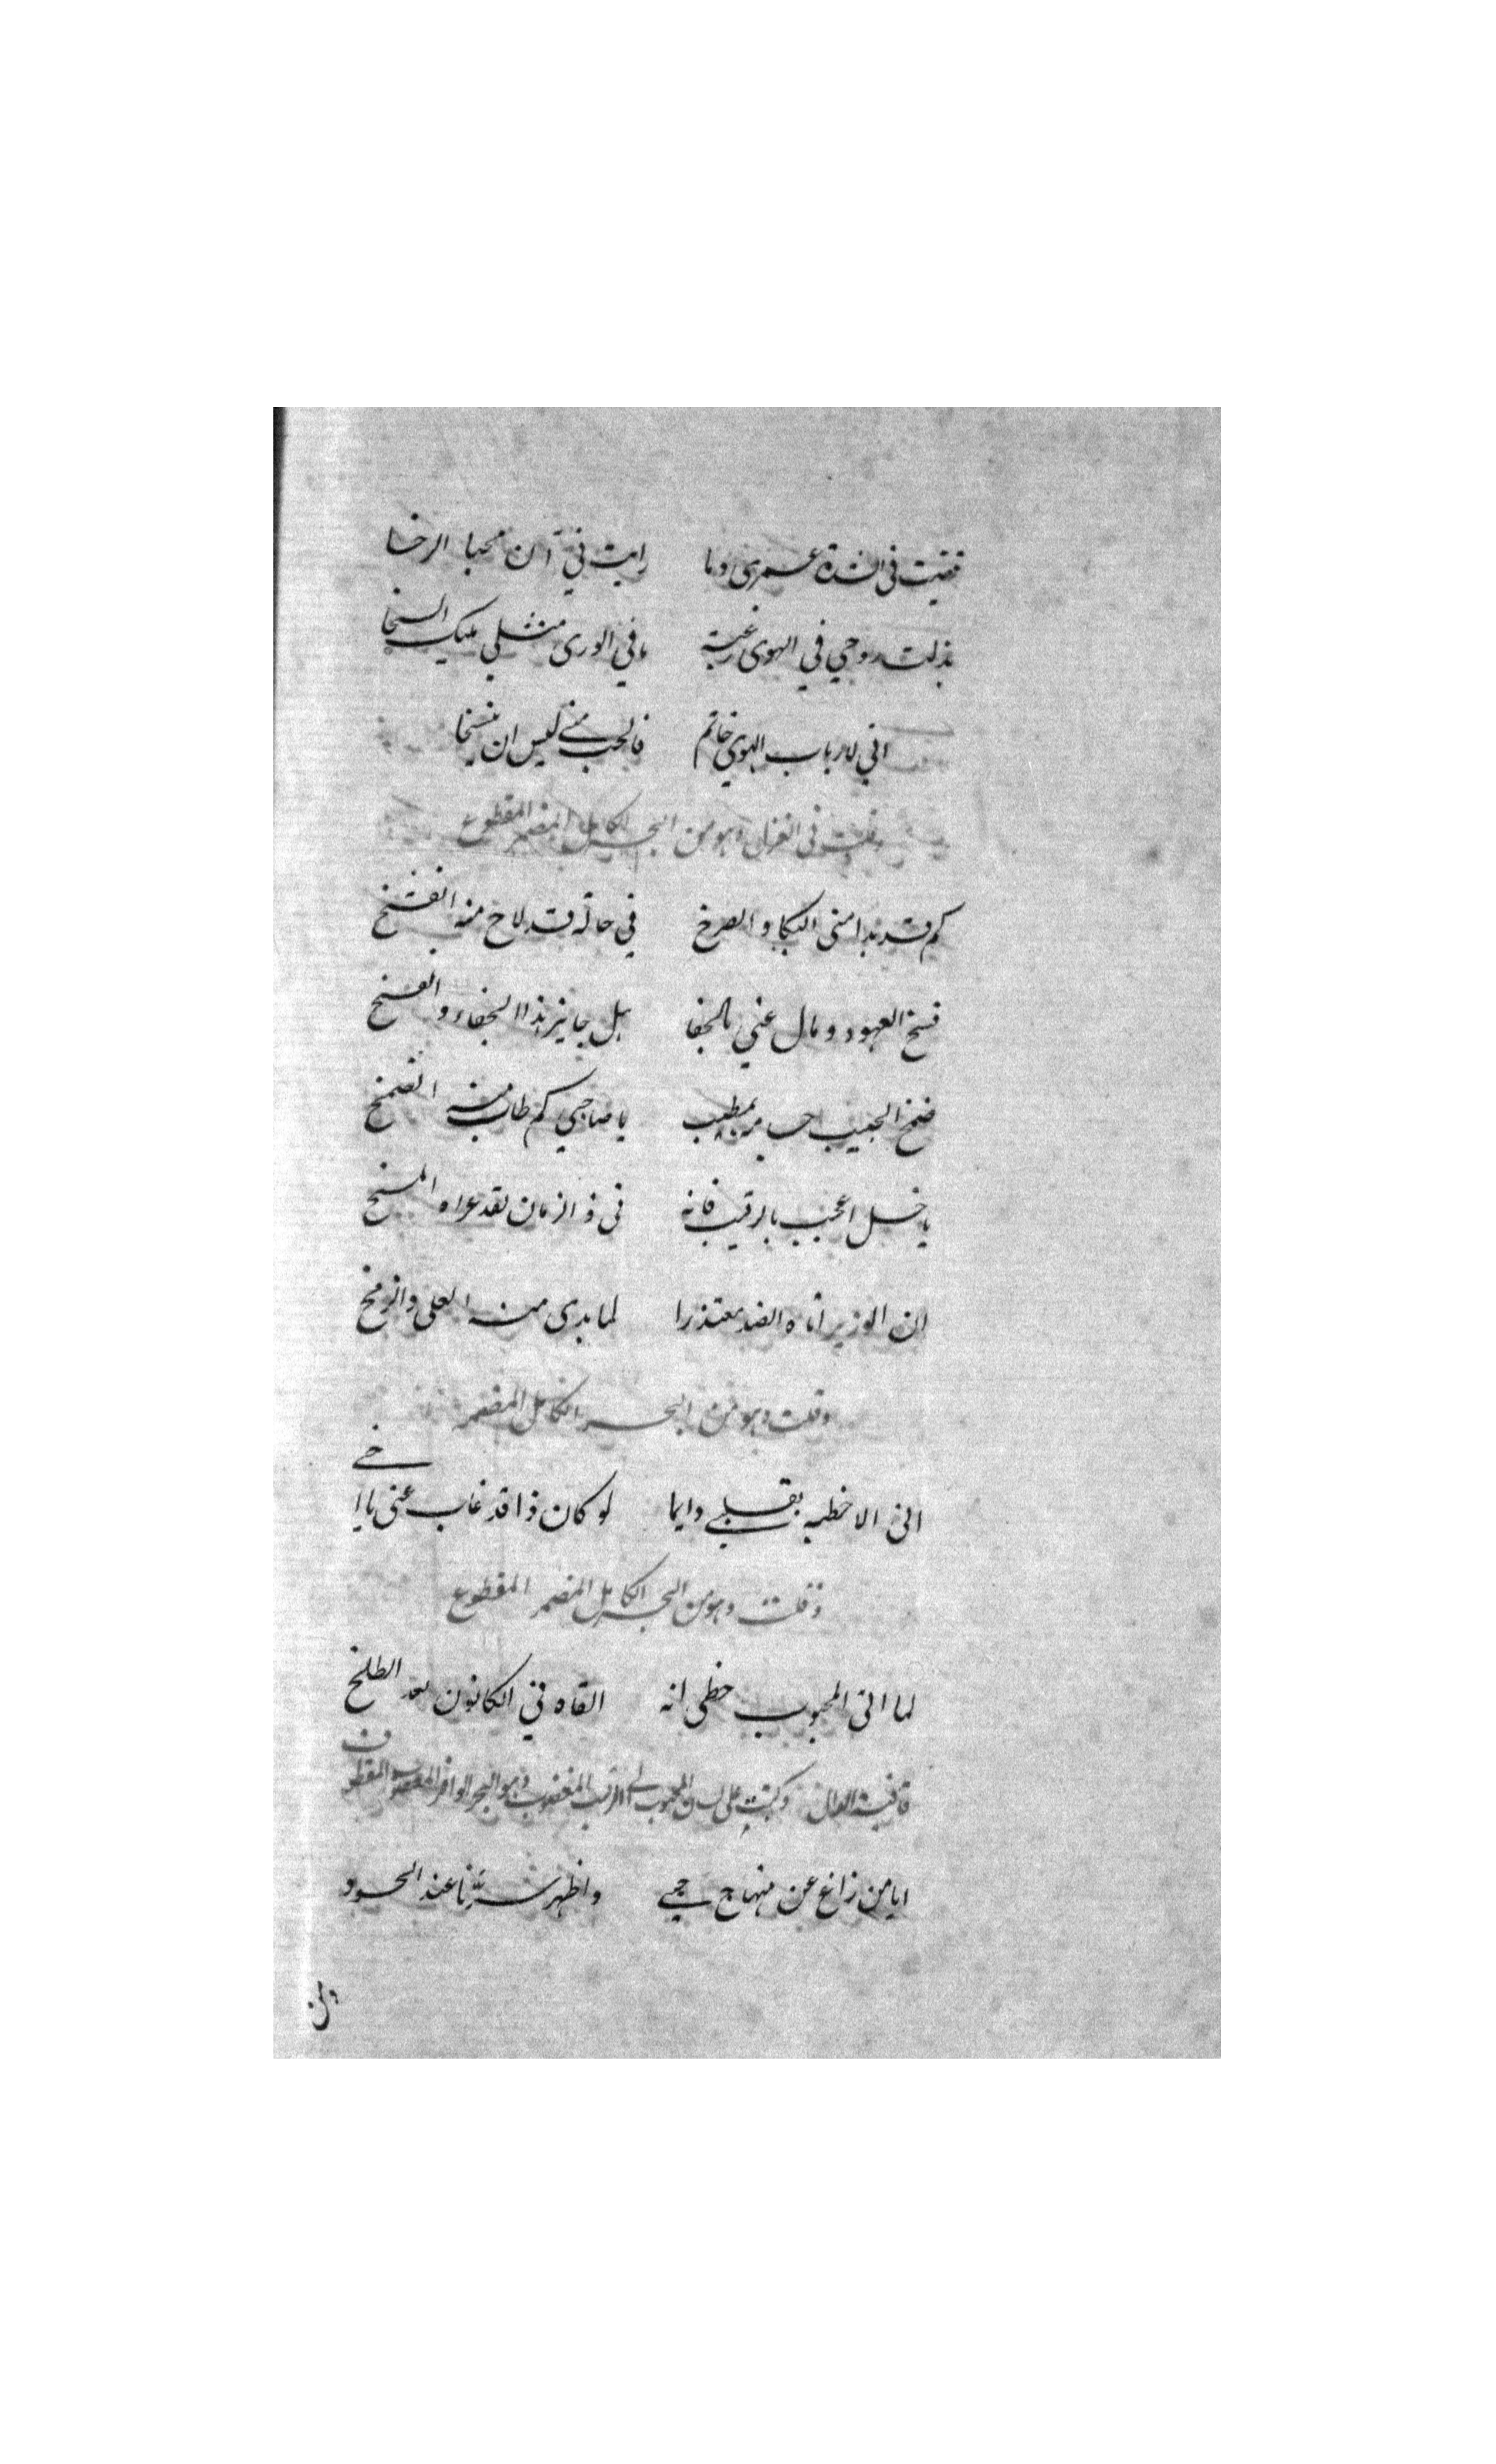 قضيت في الشدة عمري وما رايت في آن محيا الرخا
بذلت روحي في الهوى رغبة ما في الورى مثلي مليك السخا
اني لارباب الهوى خاتم فالحب مني ليس ان ينسخا
وقلت في الغزل وهو من البحر الكامل المضمر المقطوع
كم قد بدا منى البكا والصرخ في حالة قد لاح منه الفشخ
فسخ العهود ومال عني بالجفا هل جايز هذا الجفاء والفسخ
ضمخ الحبيب بمطيب يا صاحبي كم طاب منه الضمخ
يا خل اعجب بالرقيب فانه في ذ الزمان لقد عراه المسخ
ان الوزير اتاه الضد معتذرا لما بدى منه العلى والزمخ
وقلت وهو من البحر الكامل المضمر
انى الاخطه بقلبي دايما لو كان ذا قد غاب عنى يا اخي
وقلت وهو من البحر الكامل المضمر المقطوع
لما اتى المحبوب خطى انه القاه في الكانون بعد الطلخ
قافية الدال وكتبت على لسان المحبوب الى الرقيب المغضوب وهو البحر الوافر المعصوب المقطوف
ايا من زاغ عن منهاج حبي واظهر سرنا عند الحسود